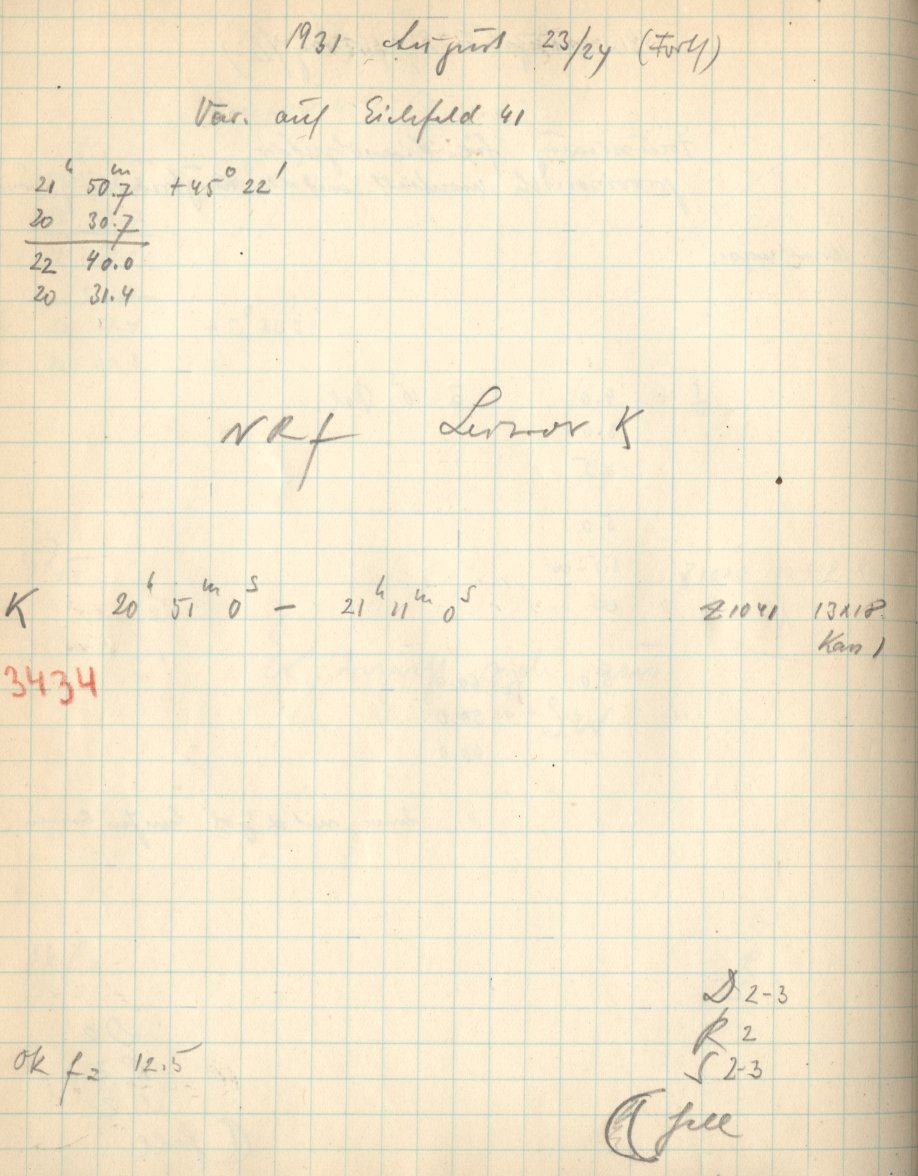 1931 August 23/24 (Forts)
Var. auf Eichfeld 41
21ʰ 50ᵐ.7 +45° 22'
20 30.7
22 40.0
20 31.4
NRf K
K 20ʰ 51ᵐ 0ˢ – 21ʰ 11ᵐ 0ˢ Z1041 13x18
Kass 1
3434
D 2-3
R 2
S 2-3
ok f= 12.5
hell